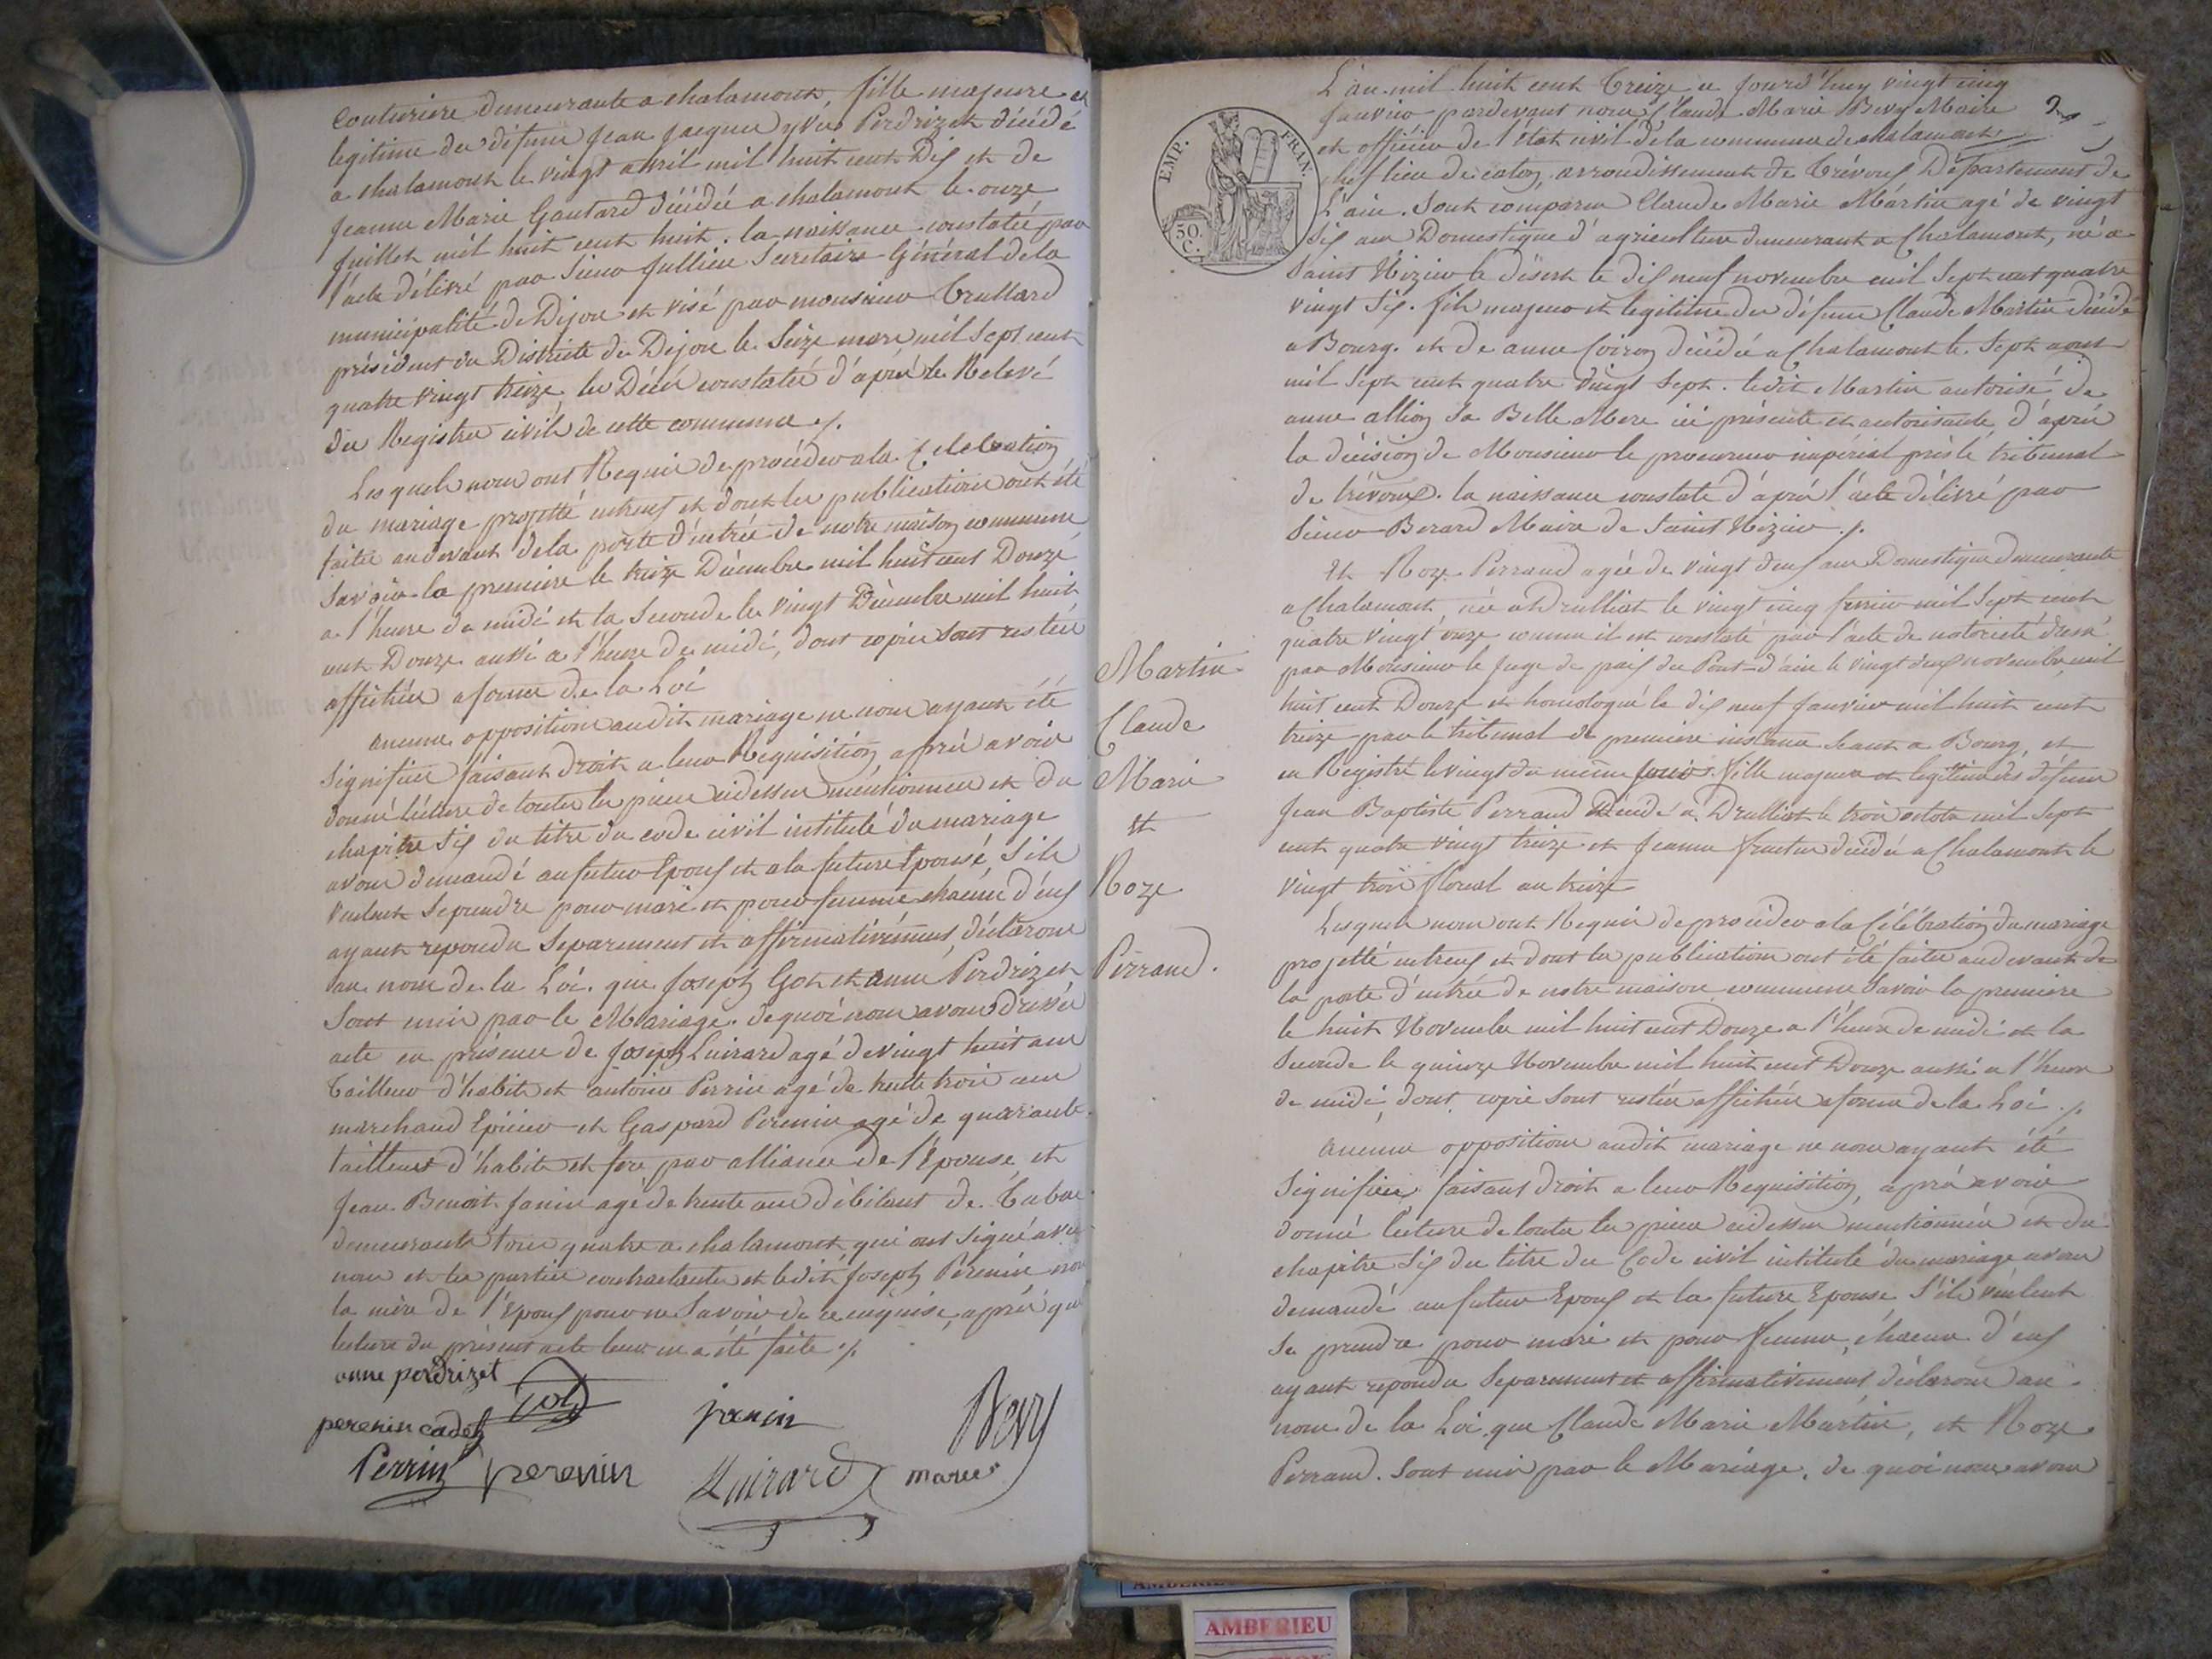 Couturiere demeurante a chalamont, fille majeure et
legitime des défunt Jean Jacques yves Perdrizet décédé
a chalamont le vingt avril mil huit cent Dix et de
Jeanne Marie Gautard décédée a chalamont le onze
juillet mil huit cent huit. la naissance constatée par
l'acte délivré par Sieur Jullien Secretaire Général de la
municipalité de Dijon et visé par monsieur Trullard
président du Districte de Dijon le Seize mars mil Sept cent
quatre vingt treize, les Décès constatés d'après le Relevé
des Registres civils de cette commune ./.
Lesquels nous ont Requis de procéder a la Celebration
du mariage projetté entreux et dont les publications ont été
faites au devant de la porte d'entrée de notre maison commune
Savoir la premiere le treize Décembre mil huit cent Douze
a l'heure de midi et la Seconde le vingt Décembre mil huit
cent Douze aussi a l'heure de midi, dont copies sont restées
affichées a forme de la Loi
aucune opposition audit mariage ne nous ayant été
Signifiée faisant droit a leur Requisition après avoir
donné lecture de toutes les pieces cidessus mentionnées et du
chapitre Six du titre du code civil intitulé du mariage
avons demandé au futur Epoux et a la future Epouse, S'ils
veulent Se prendre pour mari et pour femme chacun d'eux
ayant repondu Separement et affirmativement, déclarons
au nom de la Loi. que Joseph Got et anne Perdrizet
Sont unis par le Mariage. de quoi nous avons dressé
acte en présence de Joseph Luirard agé de vingt huit ans
Tailleur d'habits et antoine Perrin agé de trente trois ans
marchand Epicier et Gaspard Perenin agé de quarante
tailleur d'habits et fere par alliance de l'Epouse, et
Jean Benoit Janin agé de trente ans débitant de Tabac
demeurants tous quatre a chalamont, qui ont signé avec
nous et les parties contractantes et ledit Joseph Perenin non
la mère de l'Epoux pour ne Savoir de ce enquise, après que
lecture du présent acte leur en a été faite ./.
anne perdrizet
Got
janin
Bevy
perenin cadet
Perrin
perenin
Luirard
maire
2
EMP. FRAN.
50 C.
L'an mil huit cent Treize ce jourd'huy vingt cinq
Janvier pardevant nous Claude Marie Bevy Maire
et officier de l'état civil de la commune de chalamont
chef lieu de caton, arrondissement de Trévoux Département de
L'ain. Sont comparus Claude Marie Martin agé de vingt
Six ans Domestique d'agriculture demeurant a Chalamont, né a
Saint Nizier le désert le dix neuf novembre mil Sept cent quatre
vingt Six. fils majeur et legitime des défunt Claude Martin décédé
a Bourg. et de anne Coiron décédée a Chalamont le Sept aout
mil Sept cent quatre vingt Sept. ledit Martin autorisé de
anne allion Sa Belle Mere ici présente et autorisante, d'après
la décision de Monsieur le procureur impérial près le tribunal
de trévoux. la naissance constaté d'après l'acte délivré par
Sieur Berard Maire de Saint Nizier ./.
Et Roze Perraud agée de vingt deux ans Domestique demeurante
a Chalamont, née a Druilliat le vingt cinq fevrier mil Sept cent
quatre vingt onze comme il est constaté par l'acte de notorieté dressé
par Monsieur le Juge de paix du Pont-d'ain le vingt deux novembre mil
huit cent Douze et homologué le dix neuf janvier mil huit cent
treize par le tribunal de premiere instance seant a Bourg, et
en Registré le vingt du même jours. fille majeure et legitime des défunt
Jean Baptiste Perraud décédé a Druilliat le trois octobre mil Sept
cent quatre vingt treize et Jeanne decedée a Chalamont le
vingt trois floreal an treize
Lesquels nous ont Requis de procéder a la Célébration du mariage
projetté entreux et dont les publications ont été faites au devant de
la porte d'entrée de notre maison commune Savoir la premiere
le huit Novembre mil huit cent Douze a l'heure de midi et la
Seconde le quinze Novembre mil huit cent Douze aussi a l'heure
de midi, dont copie Sont restées affichées a forme de la Loi ./.
Aucune opposition audit mariage ne nous ayant été
Signifiée, faisant droit a leur Requisition, après avoir
donné lecture de toutes les pieces cidessus mentionnées et du
chapitre Six du titre du Code civil intitulé du mariage avons
demandé au futur Epoux et la future Epouse S'ils veulent
Se prendre pour mari et pour femme, chacun d'eux
ayant repondu Separement et affirmativement, déclarons au
nom de la Loi que Claude Marie Martin, et Roze
Perraud. Sont unis par le Mariage. de quoi nous avons
Martin
Claude
Marie
et
Roze
Perraud.
AMBERIEU